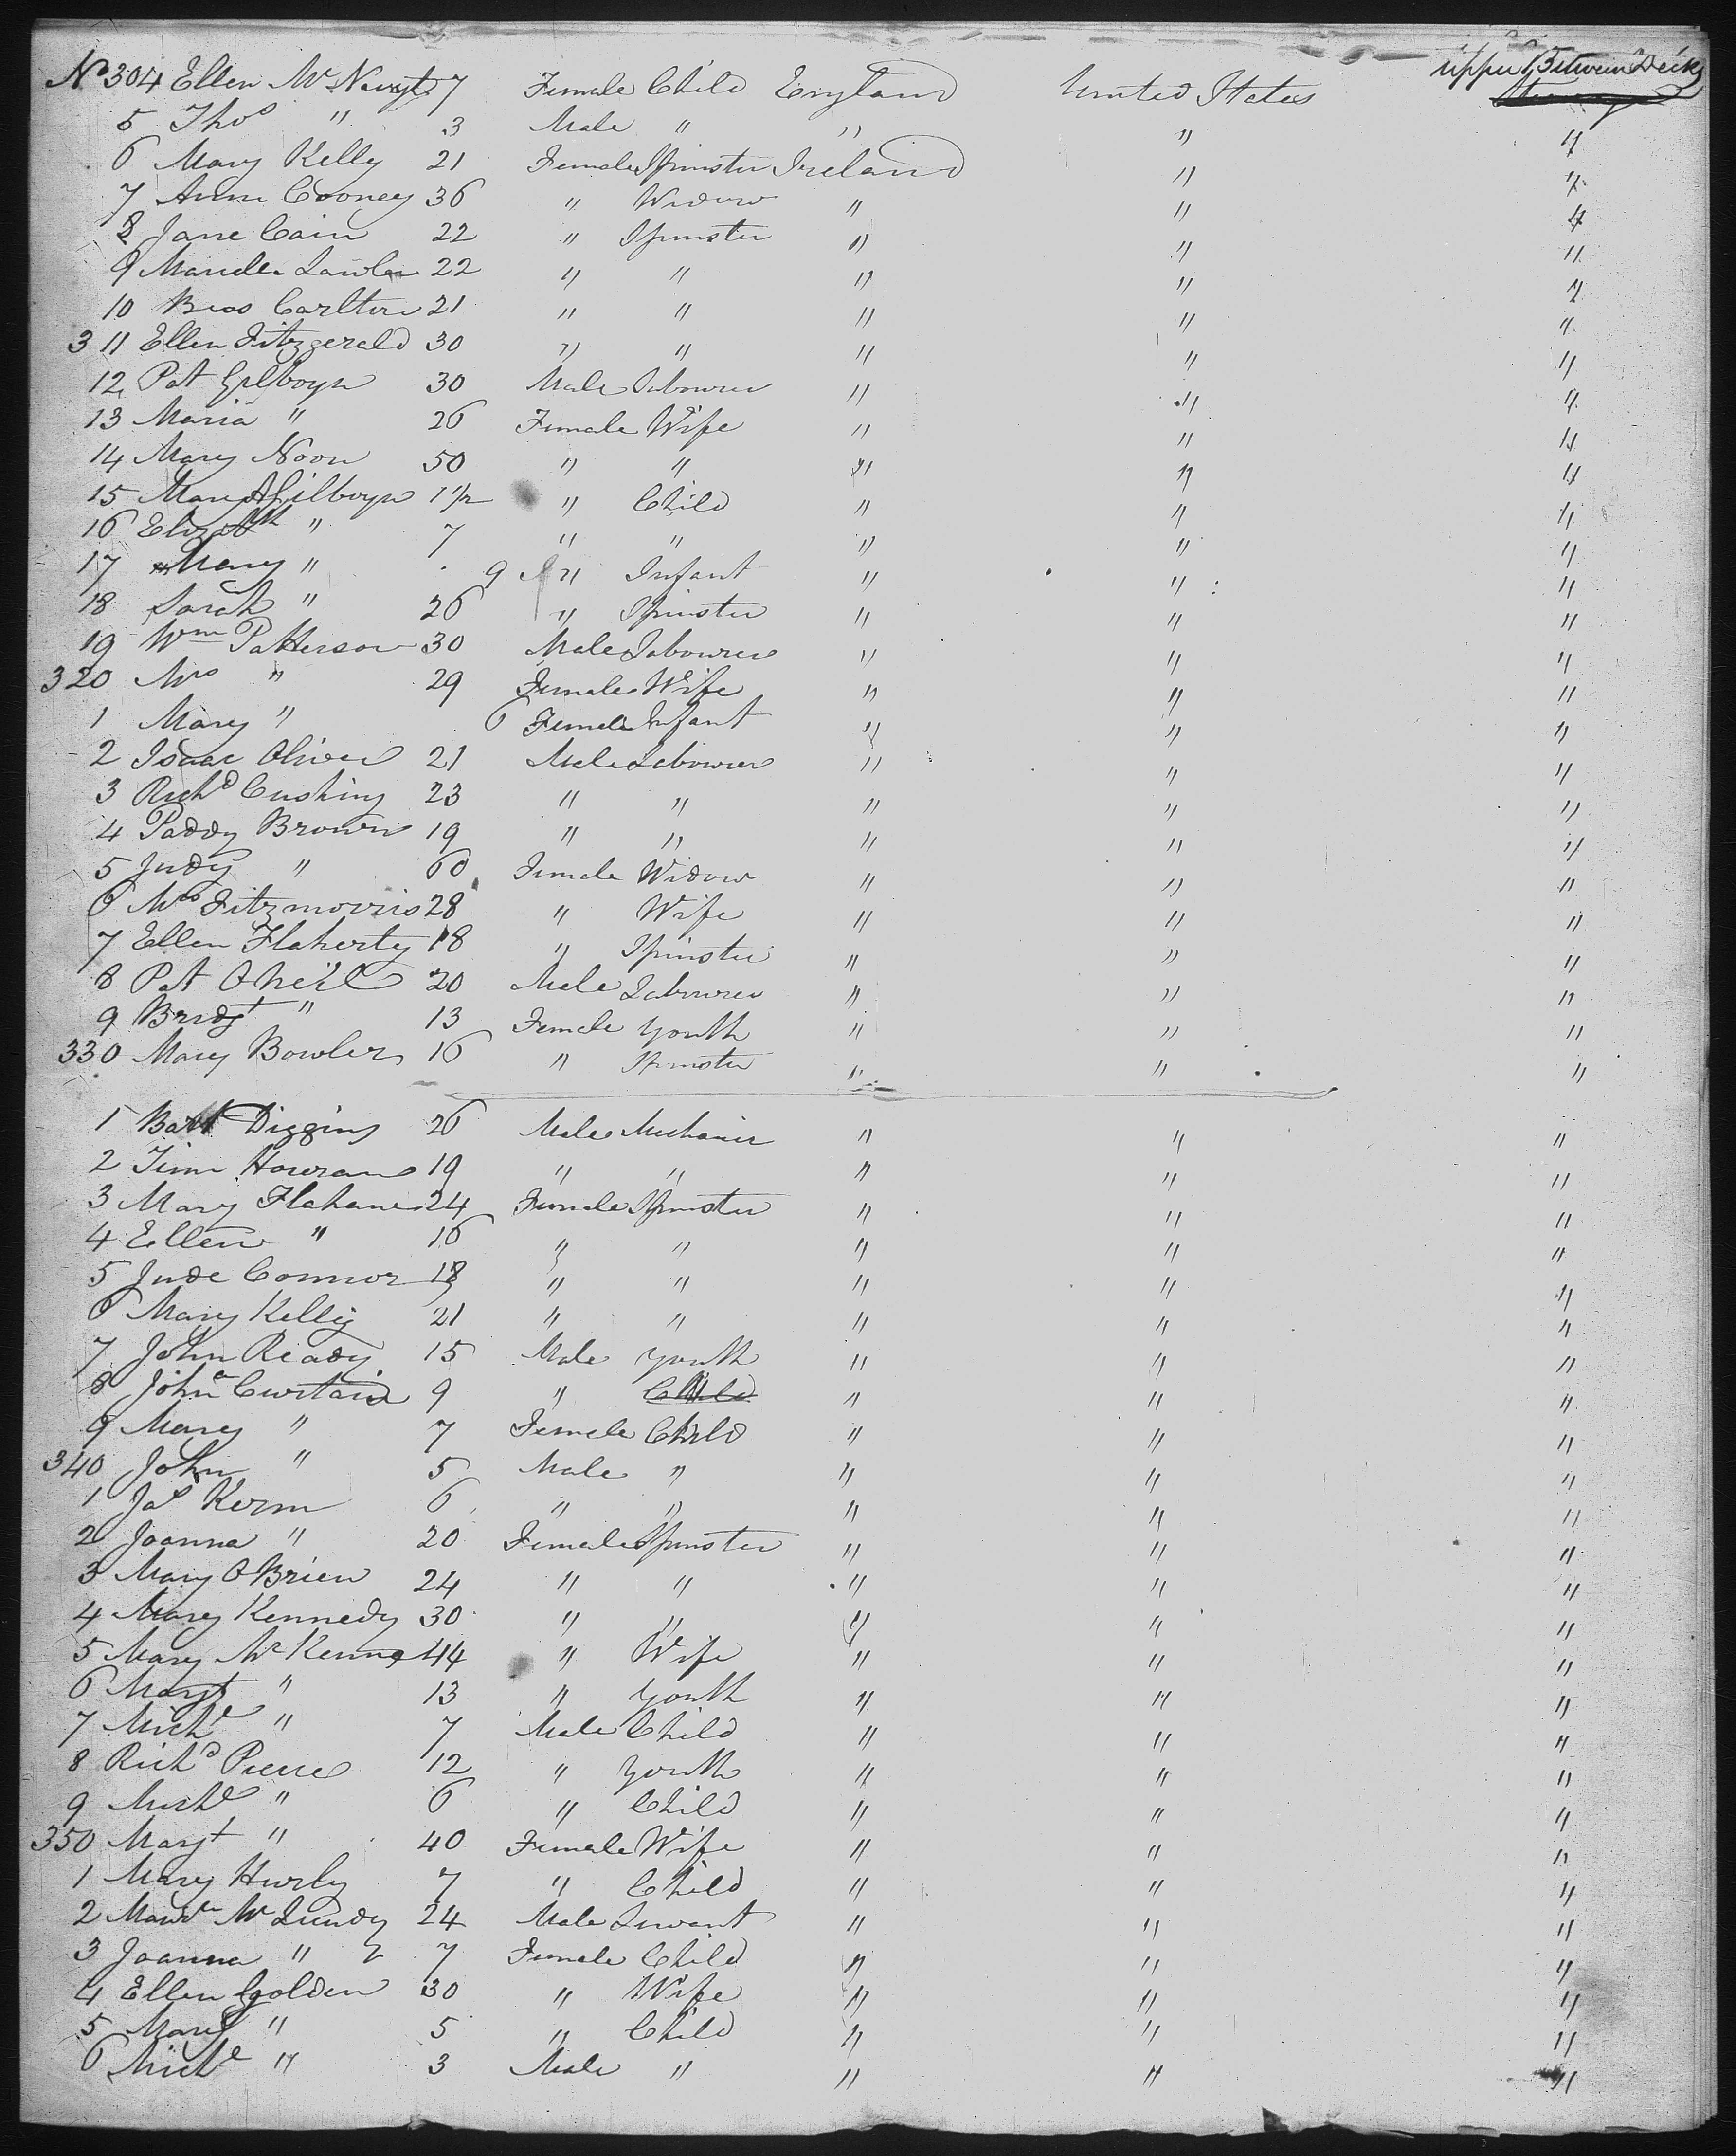 No 304 Ellen Mc 7 Female Child England United States Upper Between Decks
5 Thos " 3 Male " " " "
6 Mary Kelly 21 Female Spinster Ireland " "
7 Ann Cooney 36 " Widow " " "
8 Jane Cain 22 " Spinster " " "
9 22 " " " " "
10 Bess Carlton 21 " " " " "
3 11 Ellen Fitzgerald 30 " " " " "
12 Pat Gilboyn 30 Male Labourer " " "
13 Maria " 26 Female Wife " " "
14 Mary Noon 50 " " " " "
15 Mary A Gilboyn 1 1/2 " Child " " "
16 Elizabth " 7 " " " " "
17 Mary " 9 " Infant " " "
18 Sarah " 26 " Spinster " " "
19 Wm Patterson 30 Male Labourer " " "
320 Mrs " 29 Female Wife " " "
1 Mary " 6 Female Infant " " "
2 Isaac Oliver 21 Male Labourer " " "
3 Richd Cushing 23 " " " " "
4 Paddy Brown 19 " " " " "
5 Judy " 60 Female Widow " " "
6 Mrs Fitzmorris 28 " Wife " " "
7 Ellen Flaherty 18 " Spinster " " "
8 Pat ONeil 20 Male Labourer " " "
9 Bridgt " 13 Female Youth " " "
330 Mary Bowler 16 " Spinster " " "
1 Batt Diggins 26 Male Mechanic " " "
2 Tim 19 " " " " "
3 Mary Flahane 24 Female Spinster " " "
4 Ellen " 16 " " " " "
5 Jude Connor 18 " " " " "
6 Mary Kelly 21 " " " " "
7 John Ready 15 Male Youth " " "
8 John Curtain 9 " Child " " "
9 Mary " 7 Female Child " " "
340 John " 5 Male " " " "
1 Jas Kerin 6 " " " " "
2 Joanna " 20 Female Spinster " " "
3 Mary OBrien 24 " " " " "
4 Mary Kennedy 30 " " " " "
5 Mary McKenna 44 " Wife " " "
6 Margt " 13 " Youth " " "
7 Michl " 7 Male Child " " "
8 Richd Pierce 12 " Youth " " "
9 Michl " 6 " Child " " "
350 Margt " 40 Female Wife " " "
1 Mary Hurly 7 " Child " " "
2 Mc 24 Male Servant " " "
3 Joanna " 7 Female Child " " "
4 Ellen Golden 30 " Wife " " "
5 Mary " 5 " Child " " "
6 Michl " 3 Male " " " "